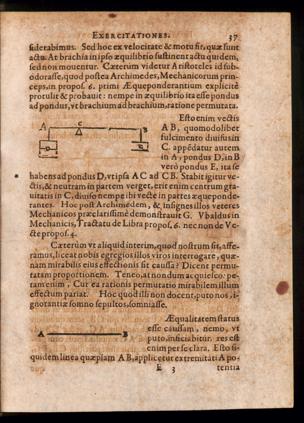 EXERCITATIONES. 37
siderabimus. Sed hoc ex velocitate & motu fit, quæ sunt
actu. At brachia in ipso æquilibrio sustinent actu quidem,
sed non mouentur. Cæterùm videtur Aristoteles id sub-
odorasse, quod postea Archimedes, Mechanicorum prin-
ceps, in propos. 6. primi Æqueponderantium explicitè
protulit & probauit: nempe in æquilibrio ita esse pondus
ad pondus, vt brachium ad brachium, ratione permutata.
Esto enim vectis
A B, quomodolibet
fulcimento diuisus in
C. appẽdatur autem
in A, pondus D, in B
verò pondus E, ita se
habens ad pondus D, vt ipsa A C ad C B. Stabit igitur ve-
ctis, & neutram in partem verget, erit enim centrum gra-
uitatis in C, diuiso nempe ibi vecte in partes æqueponde-
rantes. Hoc post Archimedem, & insignes illos veteres
Mechanicos præclarissimè demonstrauit G. Vbaldus in
Mechanicis, Tractatu de Libra propos. 6. nec non de Ve-
cte propos. 4.
Cæterùm vt aliquid interim, quod nostrum sit, affe-
ramus, liceat nobis egregios illos viros interrogare, quæ-
nam mirabilis eius effectionis sit causa? Dicent permu-
tatam proportionem. Teneo, at nondum acquiesco. pe-
tam enim, Cur ea rationis permutatio mirabilem illum
effectum pariat. Hoc quod illi non docent, puto nos, i-
gnorantiæ somno sepultos, somniasse.
Æqualitatem status
esse causam, nemo, vt
puto, inficiabitur. res est
enim per se clara. Esto si-
quidem linea quæpiam A B, applicetur extremitati A po-
E 3 tentia
A C B
D E
A B